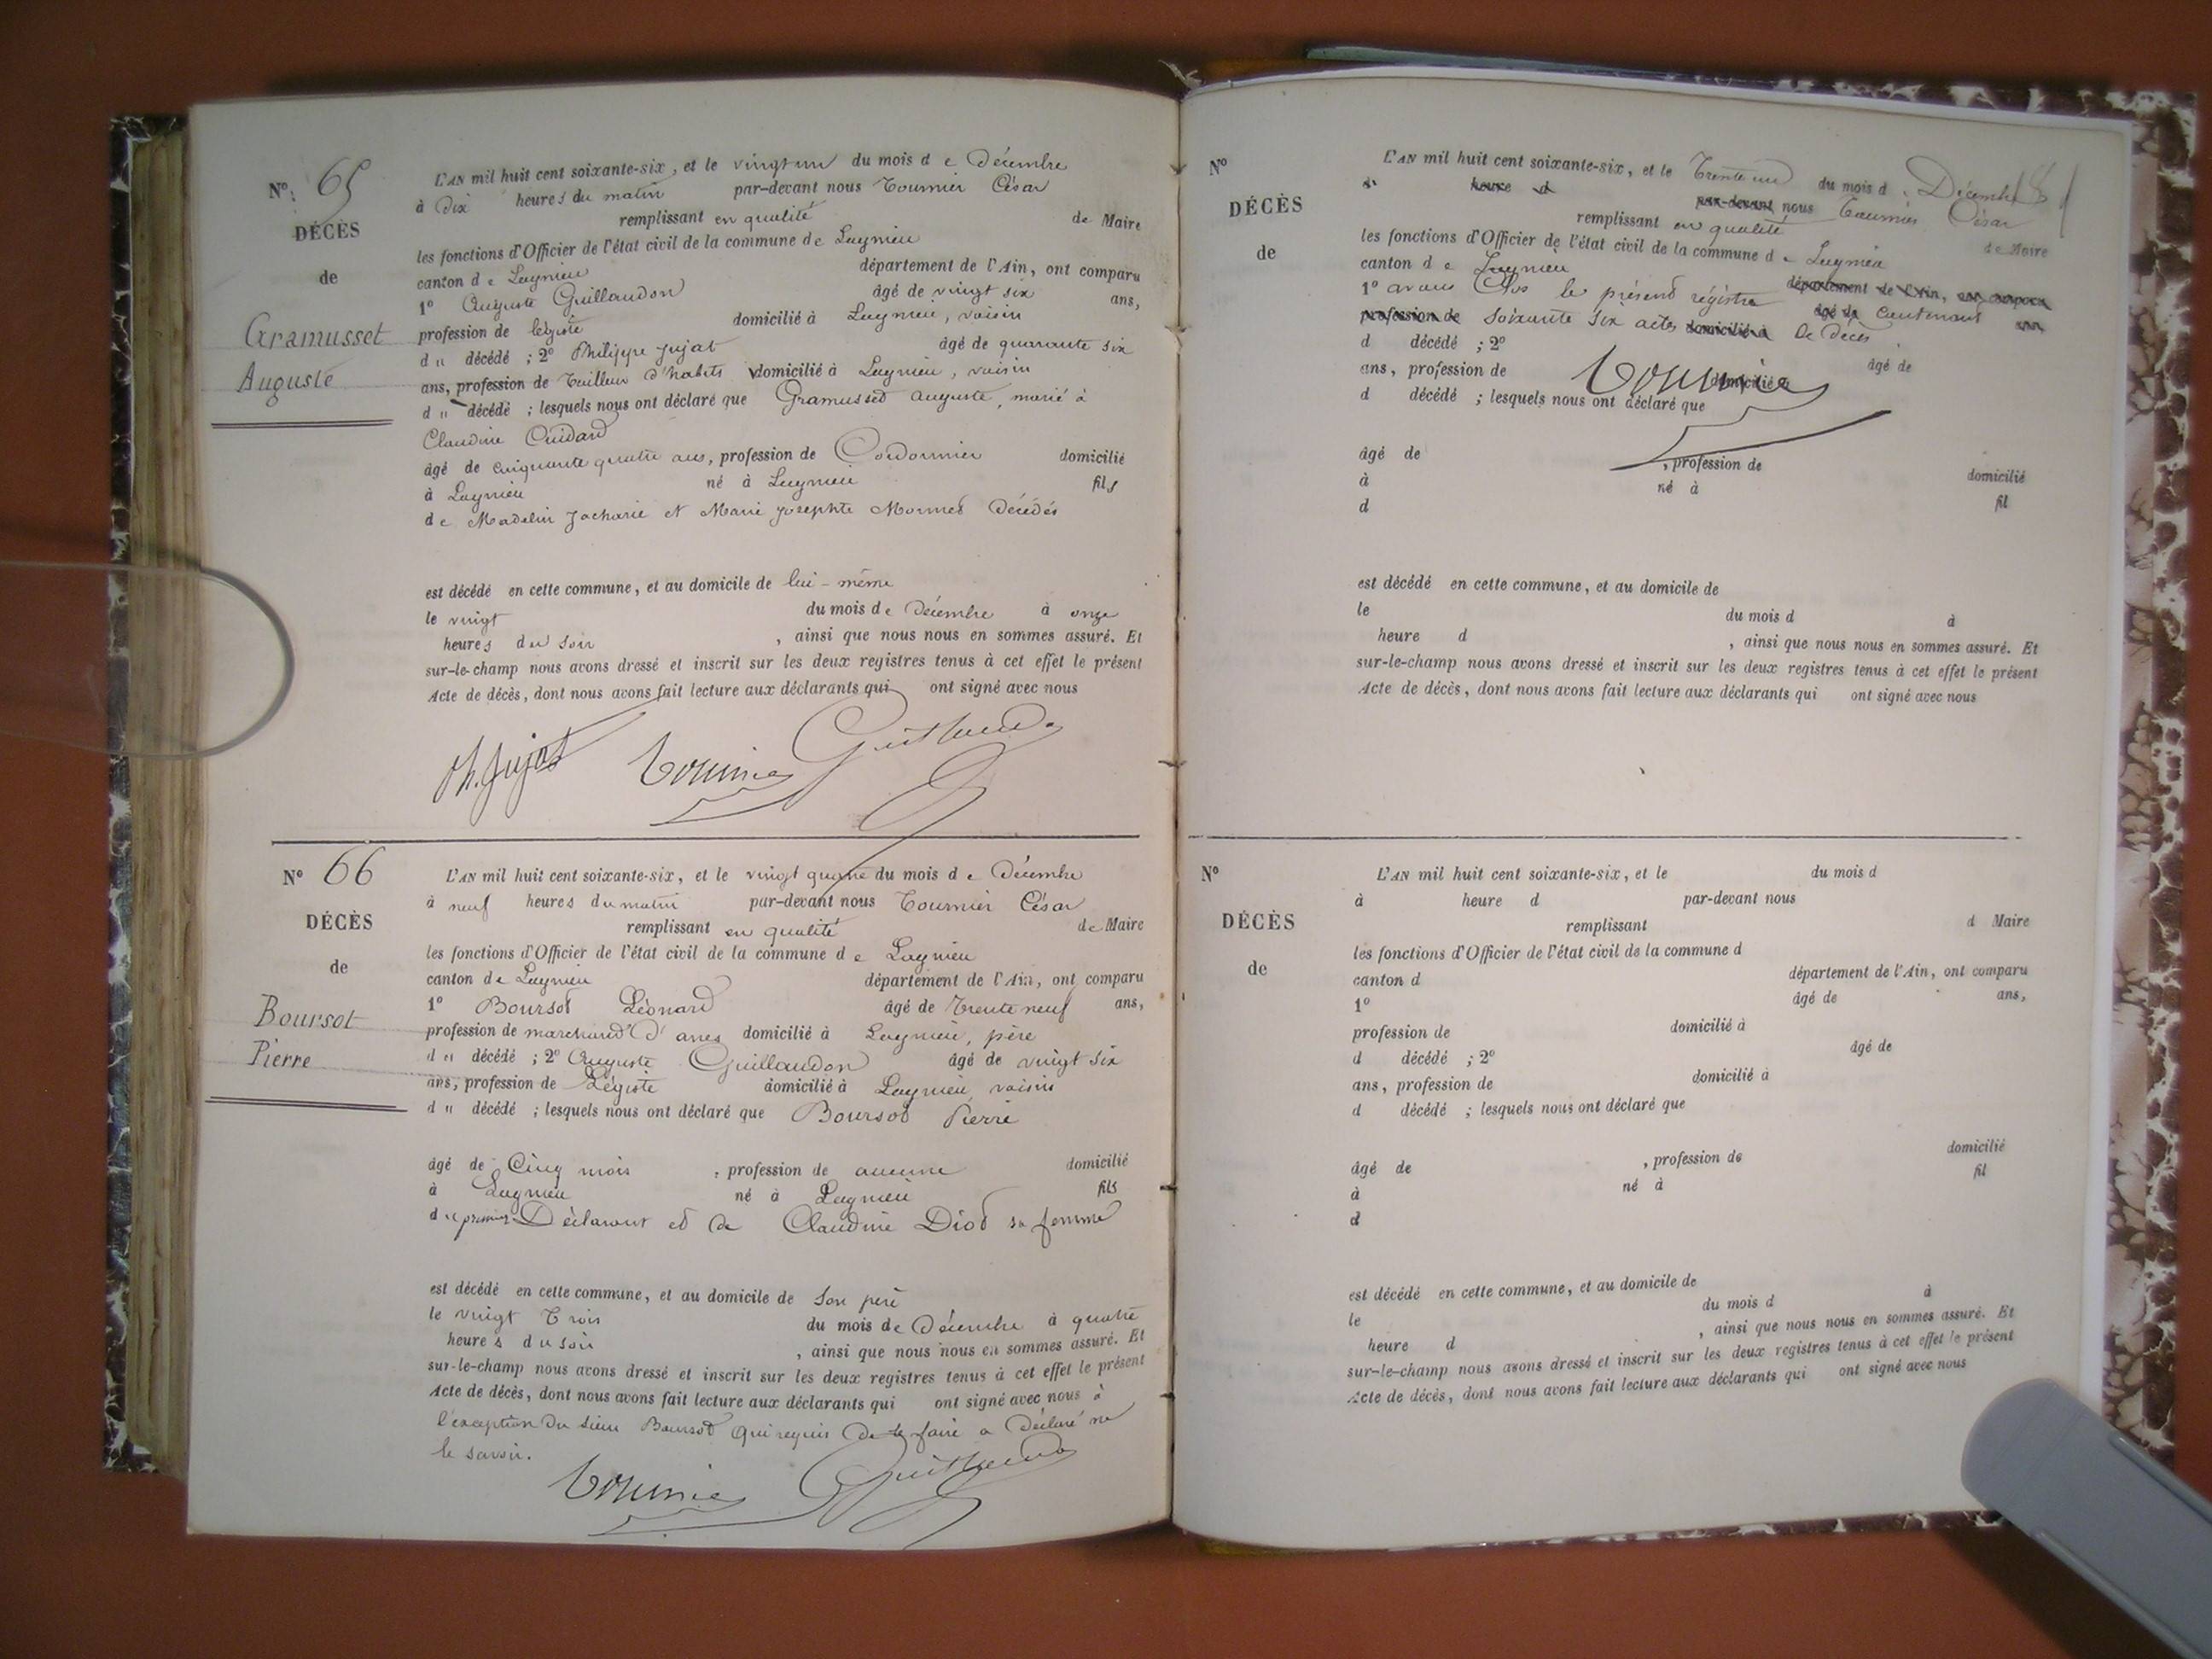 N° 65
DÉCÈS
de
Gramusset
Auguste
L'AN mil huit cent soixante-six, et le vingt un du mois de Décembre
à Dix heures du matin par-devant nous Tournier César
remplissant en qualité de Maire
les fonctions d'Officier de l'état civil de la commune de Lagnieu
canton de Lagnieu département de l'Ain, ont comparu
1° Auguste Guillaudon âgé de vingt six ans,
profession de légiste domicilié à Lagnieu, voisin
du décédé ; 2° Philippe Jujat âgé de quarante six
ans, profession de Tailleur d'habits domicilié à Lagnieu, voisin
du décédé ; lesquels nous ont déclaré que Gramusset Auguste, marié à
Claudine
âgé de cinquante quatre ans, profession de Cordonnier domicilié
à Lagnieu né à Lagnieu fils
de Madelin Zacharie et Marie Josephte Décédés
est décédé en cette commune, et au domicile de lui-même
le vingt du mois de Décembre à onze
heures du soir , ainsi que nous nous en sommes assuré. Et
sur-le-champ nous avons dressé et inscrit sur les deux registres tenus à cet effet le présent
Acte de décès, dont nous avons fait lecture aux déclarants qui ont signé avec nous
Ph. Jujat Tournier Guillaudon
N° 66
DÉCÈS
de
Boursot
Pierre
L'AN mil huit cent soixante-six, et le vingt quatre du mois de Décembre
à neuf heures du matin par-devant nous Tournier César
remplissant en qualité de Maire
les fonctions d'Officier de l'état civil de la commune de Lagnieu
canton de Lagnieu département de l'Ain, ont comparu
1° Boursot Léonard âgé de Trente neuf ans,
profession de marchand d'anes domicilié à Lagnieu, père
du décédé ; 2° Auguste Guillaudon âgé de vingt six
ans, profession de Légiste domicilié à Lagnieu, voisin
du décédé ; lesquels nous ont déclaré que Boursot Pierre
âgé de Cinq mois , profession de aucune domicilié
à Lagnieu né à Lagnieu fils
du premier Déclarant et de Claudine Diot sa femme
est décédé en cette commune, et au domicile de son père
le vingt Trois du mois de Décembre à quatre
heures du soir , ainsi que nous nous en sommes assuré. Et
sur-le-champ nous avons dressé et inscrit sur les deux registres tenus à cet effet le présent
Acte de décès, dont nous avons fait lecture aux déclarants qui ont signé avec nous à
l'exception du sieur Boursot qui requis de le faire a Déclaré ne
le savoir.
Tournier Guillaudon
N°
DÉCÈS
de
L'AN mil huit cent soixante-six, et le Trente un du mois d Décembre
à heure d par-devant nous Tournier César
remplissant en qualité de Maire
les fonctions d'Officier de l'état civil de la commune de Lagnieu
canton de Lagnieu département de l'Ain, ont comparu
1° avons Clos le présent régistre âgé de Contenant ans
profession de soixante six actes domicilié à de Décès
d décédé ; 2° âgé de
ans, profession de domicilié à
Tournier
d décédé ; lesquels nous ont déclaré que
âgé de , profession de domicilié
à né à fil
d
est décédé en cette commune, et au domicile de
le du mois d à
heure d , ainsi que nous nous en sommes assuré. Et
sur-le-champ nous avons dressé et inscrit sur les deux registres tenus à cet effet le présent
Acte de décès, dont nous avons fait lecture aux déclarants qui ont signé avec nous
N°
DÉCÈS
de
L'AN mil huit cent soixante-six, et le du mois d
à heure d par-devant nous
remplissant d Maire
les fonctions d'Officier de l'état civil de la commune d
canton d département de l'Ain, ont comparu
1° âgé de ans,
profession de domicilié à
d décédé ; 2° âgé de
ans, profession de domicilié à
d décédé ; lesquels nous ont déclaré que
âgé de , profession de domicilié
à né à fil
d
est décédé en cette commune, et au domicile de
le du mois d à
heure d , ainsi que nous nous en sommes assuré. Et
sur-le-champ nous avons dressé et inscrit sur les deux registres tenus à cet effet le présent
Acte de décès, dont nous avons fait lecture aux déclarants qui ont signé avec nous